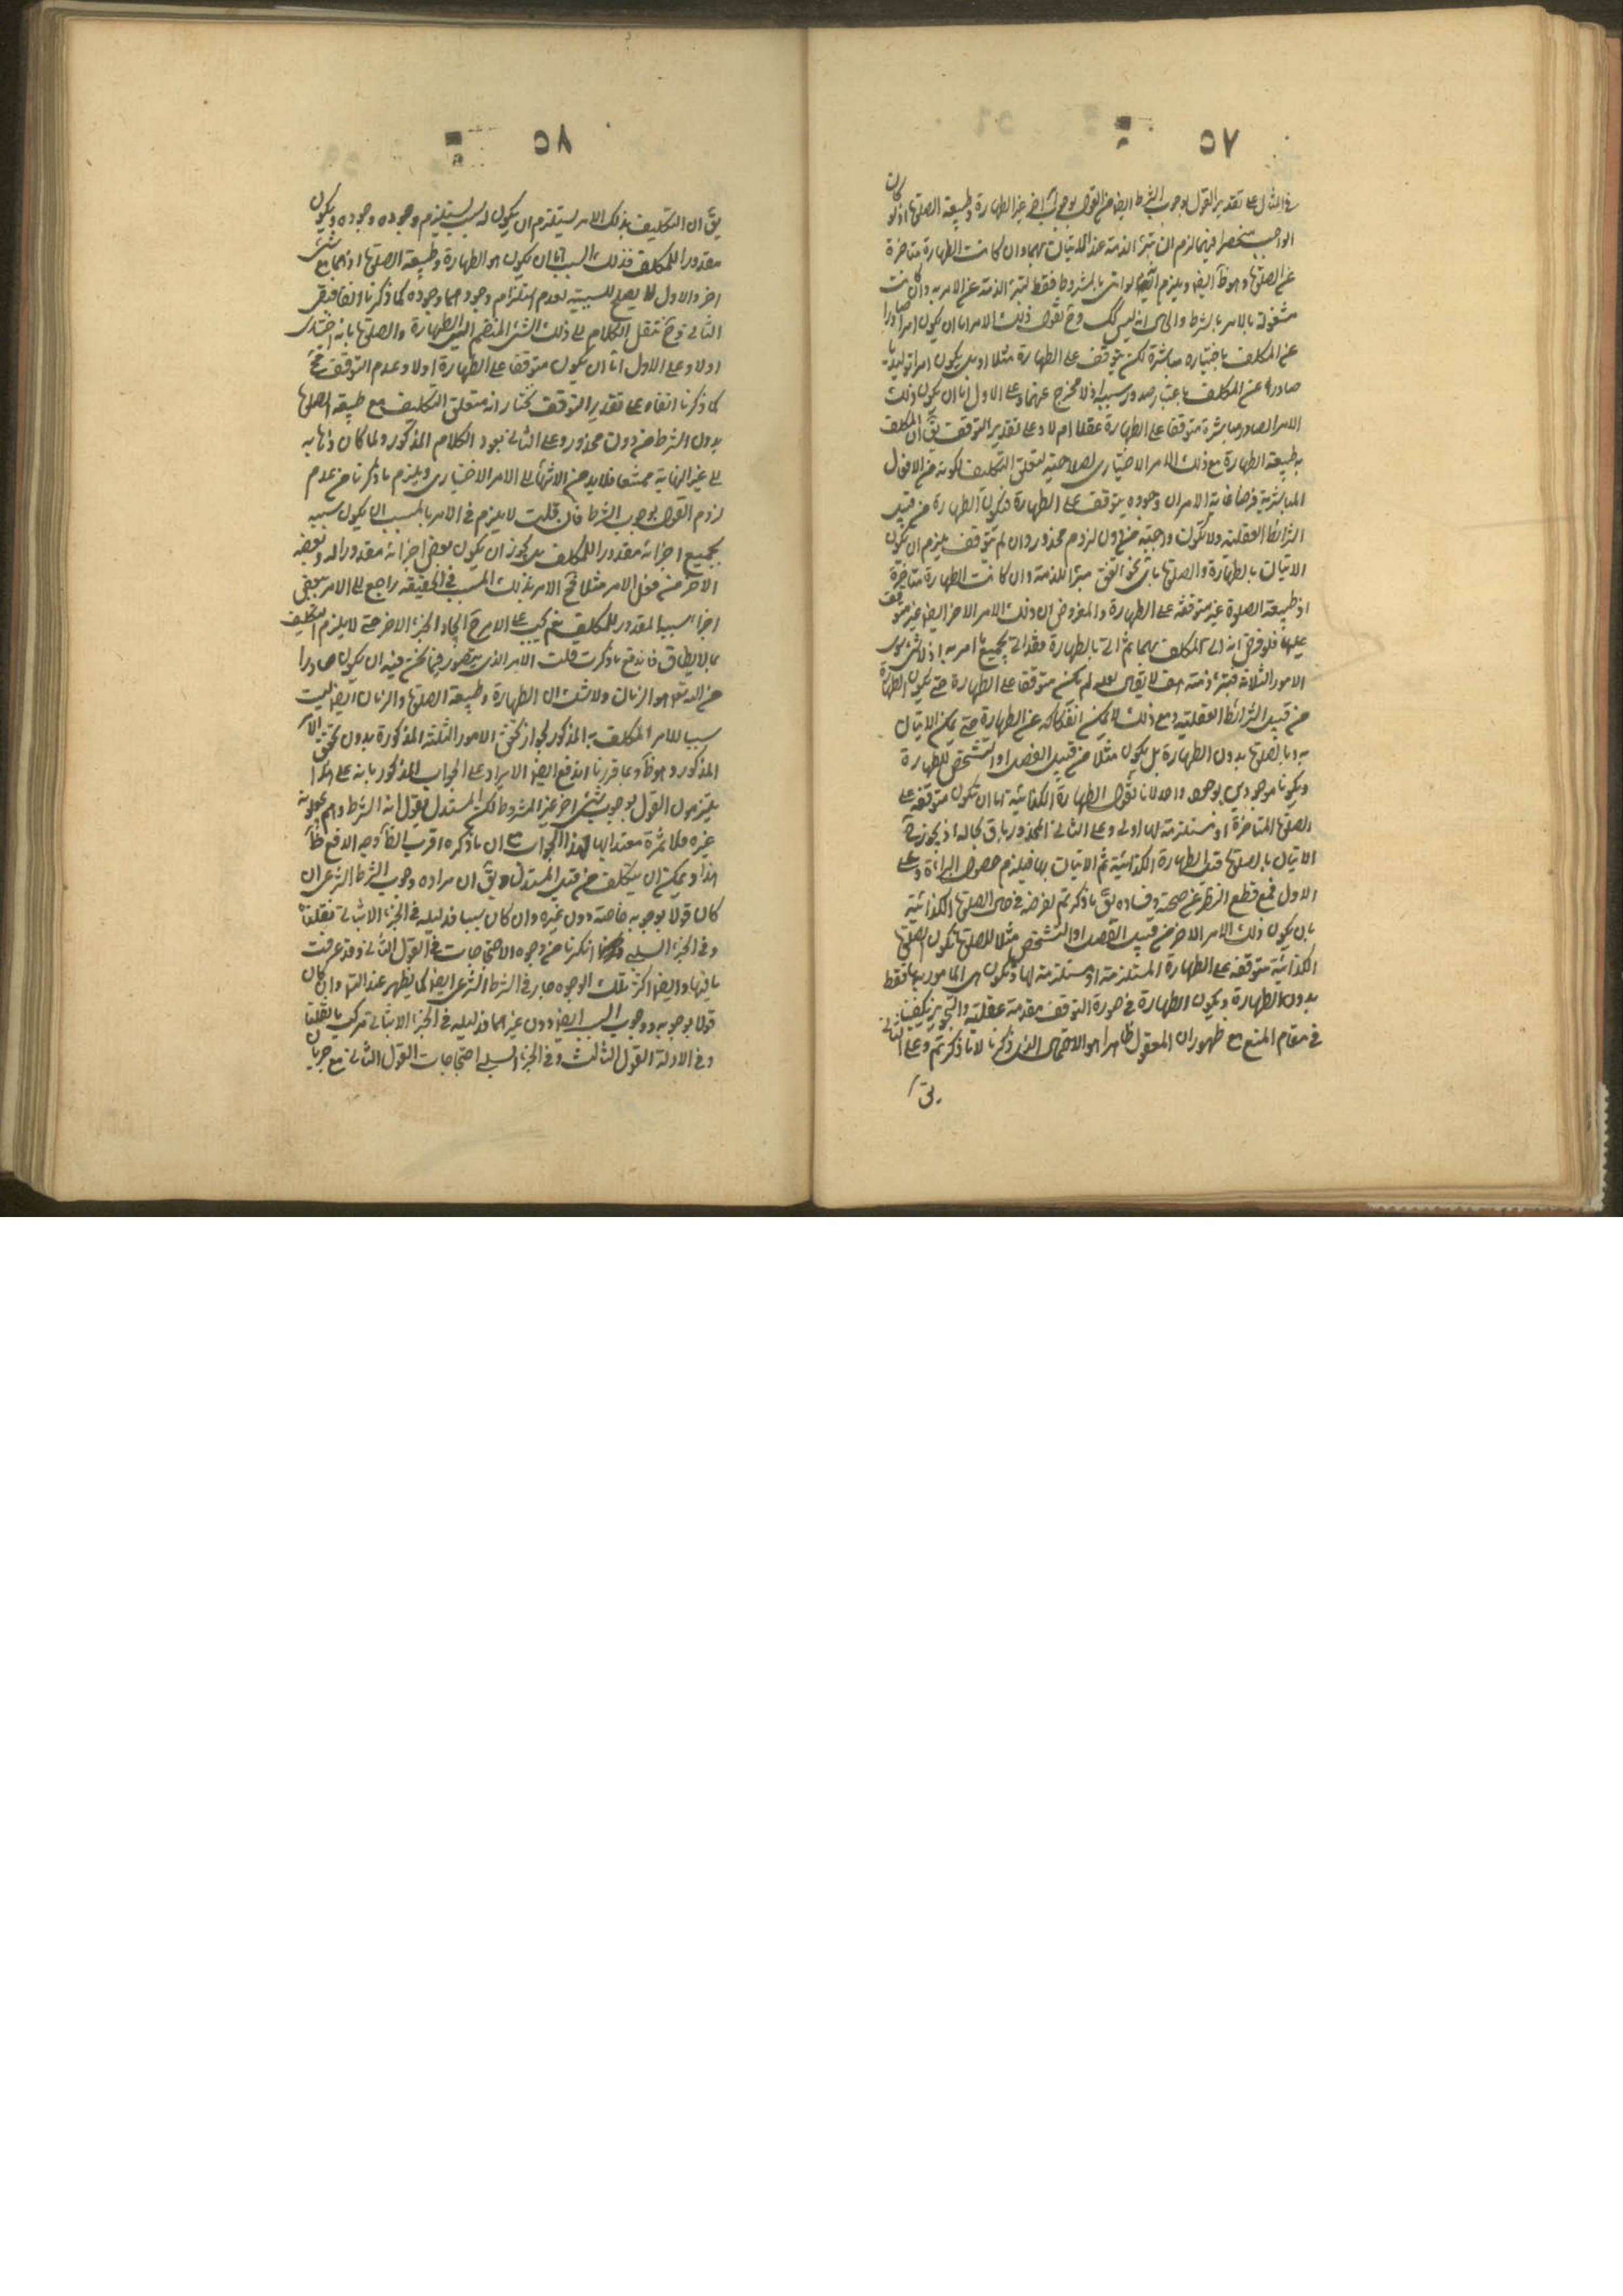 ٥٧
في المثال على تقدير القول بوجوب الشرط ايضا من القول بوجوب شئ اخر غير الطهارة وطبيعة الصلوة اذ لو كان
الواجب منحصرا فيهما لزم ان تبرئ الذمة عند الاتيان بهما وان كانت الطهارة متاخرة
عن الصلوة وهو ظ ايضا ويلزم انه لو اتى بالمشروط فقط لتبرئ الذمة عن الامر به وان كانت
مشغولة بالامر بالشرط والحال انه ليس كك وح نقول ذلك الامر اما ان يكون امرا صادرا
عن المكلف باختياره مباشرة لكن يتوقف على الطهارة مثلا او بان يكون امرا توليديا
صادرا عن المكلف باعتبار صدور سببه اذ لا مخرج عنهما وعلى الاول اما ان يكون ذلك
الامر الصادر مباشرة متوقفا على الطهارة عقلا ام لا وعلى تقدير التوقف يق ان المكلف
به طبيعة الطهارة مع ذلك الامر الاختياري لصلاحيته لتعلق التكليف لكونه من الافعال
المباشرية فرضا غاية الامر ان وجوده يتوقف على الطهارة فتكون الطهارة من قبيل
الشرائط العقلية ولا تكون واجبة من دون لزوم محذور وان لم يتوقف يلزم ان يكون
الاتيان بالطهارة والصلوة باى نحو اتفق مبرئا للذمة وان كانت الطهارة متاخرة
اذ طبيعة الصلوة غير متوقفة على الطهارة والمفروض ان ذلك الامر الاخر ايضا غير متوقف
عليها فلو فرض انه اتى المكلف بهما ثم اتى بالطهارة فقد اتى بجميع ما امر به اذ لا شئ سوى
الامور الثلاثة فتبرئ ذمته هف لا يقال لعله لم يكن متوقفا على الطهارة حتى يكون الطهارة
من قبيل الشرائط العقلية ومع ذلك لا يمكن انفكاكه عن الطهارة حتى يمكن الاتيان
به وبالصلوة بدون الطهارة بل يكون مثلا من قبيل الفصل او التشخص للطهارة
ويكونا موجودين بوجود واحد لانا نقول الطهارة الكذائية اما ان تكون متوقفة على
الصلوة المتاخرة او مستلزمة لها او لا وعلى الثاني المحذور باق بحاله اذ يجوز ح
الاتيان بالصلوة قبل الطهارة الكذائية ثم الاتيان بها فيلزم حصول البراءة وعلى
الاول فمع قطع النظر عن صحته وفساده يق ما ذكرتم نفرضه في الصلوة الكذائية
بان يكون ذلك الامر الاخر من قبيل الفصل او التشخص مثلا للصلوة فتكون الصلوة
الكذائية متوقفة على الطهارة المستلزمة او مستلزمة لها وتكون هى المامور بها فقط
بدون الطهارة ويكون الطهارة في صورة التوقف مقدمة عقلية والتجويز يكفينا
في مقام المنع مع ظهور ان المعقول ظاهرا هو الاحتمال الذى ذكرنا لا ما ذكرتم وعلى الثاني
يق
٥٨
يق ان التكليف بذلك الامر يستلزم ان يكون له سبب يستلزم وجوده وجوده ويكون
مقدورا للمكلف فذلك السبب اما ان يكون هو الطهارة وطبيعة الصلوة او هما مع شئ
اخر والاول لا يصلح للسببية لعدم استلزام وجودهما وجوده كما ذكرنا انفا فبقى
الثاني وح ننقل الكلام الى ذلك الشئ المنضم الى الطهارة والصلوة بانه اختيارى
او لا وعلى الاول اما ان يكون متوقفا على الطهارة او لا وعدم التوقف مح
كما ذكرنا انفا وعلى تقدير التوقف نختار انه متعلق التكليف مع طبيعة الصلوة
بدون الشرط من دون محذور وعلى الثاني نعود الكلام المذكور ولما كان ذهابه
الى غير النهاية ممتنعا فلا بد من الانتهاء الى الامر الاختيارى ويلزم ما ذكرنا من عدم
لزوم القول بوجوب الشرط فان قلت لا يلزم في الامر بالمسبب ان يكون سببه
بجميع اجزائه مقدورا للمكلف بل يجوز ان يكون بعض اجزائه مقدورا له وبعضه
الاخر من فعل الامر مثلا فح الامر بذلك المسبب في الحقيقة راجع الى الامر ببعض
اجزاء سببه المقدور للمكلف نعم يجب على الامر ح ايجاد الجزء الاخر حتى لا يلزم التكليف
بما لا يطاق فاندفع ما ذكرت قلت الامر الذى يتصور فيما نحن فيه ان يكون صادرا
من الله تعالى هو الزمان ولا شك ان الطهارة وطبيعة الصلوة والزمان ايضا ليست
سببا للامر المكلف به المذكور لجواز تحقق الامور الثلثة المذكورة بدون تحقق الامر
المذكور وهو ظ وبما قررنا اندفع ايضا الايراد على الجواب المذكور بانه على هذا
يلتزمون القول بوجوب شئ اخر غير المشروط لكن المستدل يقول انه الشرط وهم يجعلونه
غيره فلا ثمرة معتدا بها لهذا الجواب مع ان ما ذكره اقرب الظ وجه الدفع ظ
هذا ويمكن ان يتكلف من قبل المستدل ويق ان مراده وجوب الشرط الشرعى ان
كان قولا بوجوبه خاصة دون غيره وان كان سببا فدليله في الجزء الاثباتى نقلنا
وفي الجزء السلبى ما ذكرنا من وجوه الاحتجاجات في القول الثاني وقد عرفت
ما فيها وايضا اكثر تلك الوجوه جار في الشرط الشرعى ايضا كما يظهر عند التامل وان كان
قولا بوجوبه ووجوب السبب ايضا دون غيرهما فدليله في الجزء الاثباتى مركب مما نقلنا
وفي الادلة القول الثالث وفي الجزء السلبى احتجاجات القول الثاني مع جريان